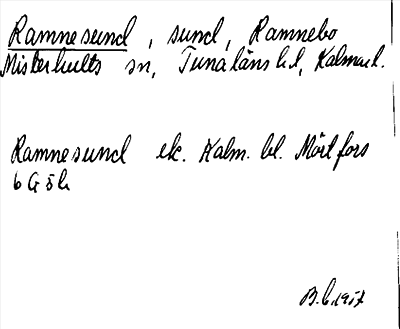 Ramnesund, sund, Ramnebo
Misterhults sn, Tunaläns hd, Kalmar l.
Ramnesund ek. Kalm. bl. Mörtfors
6 G 5 h
B. 6.1957